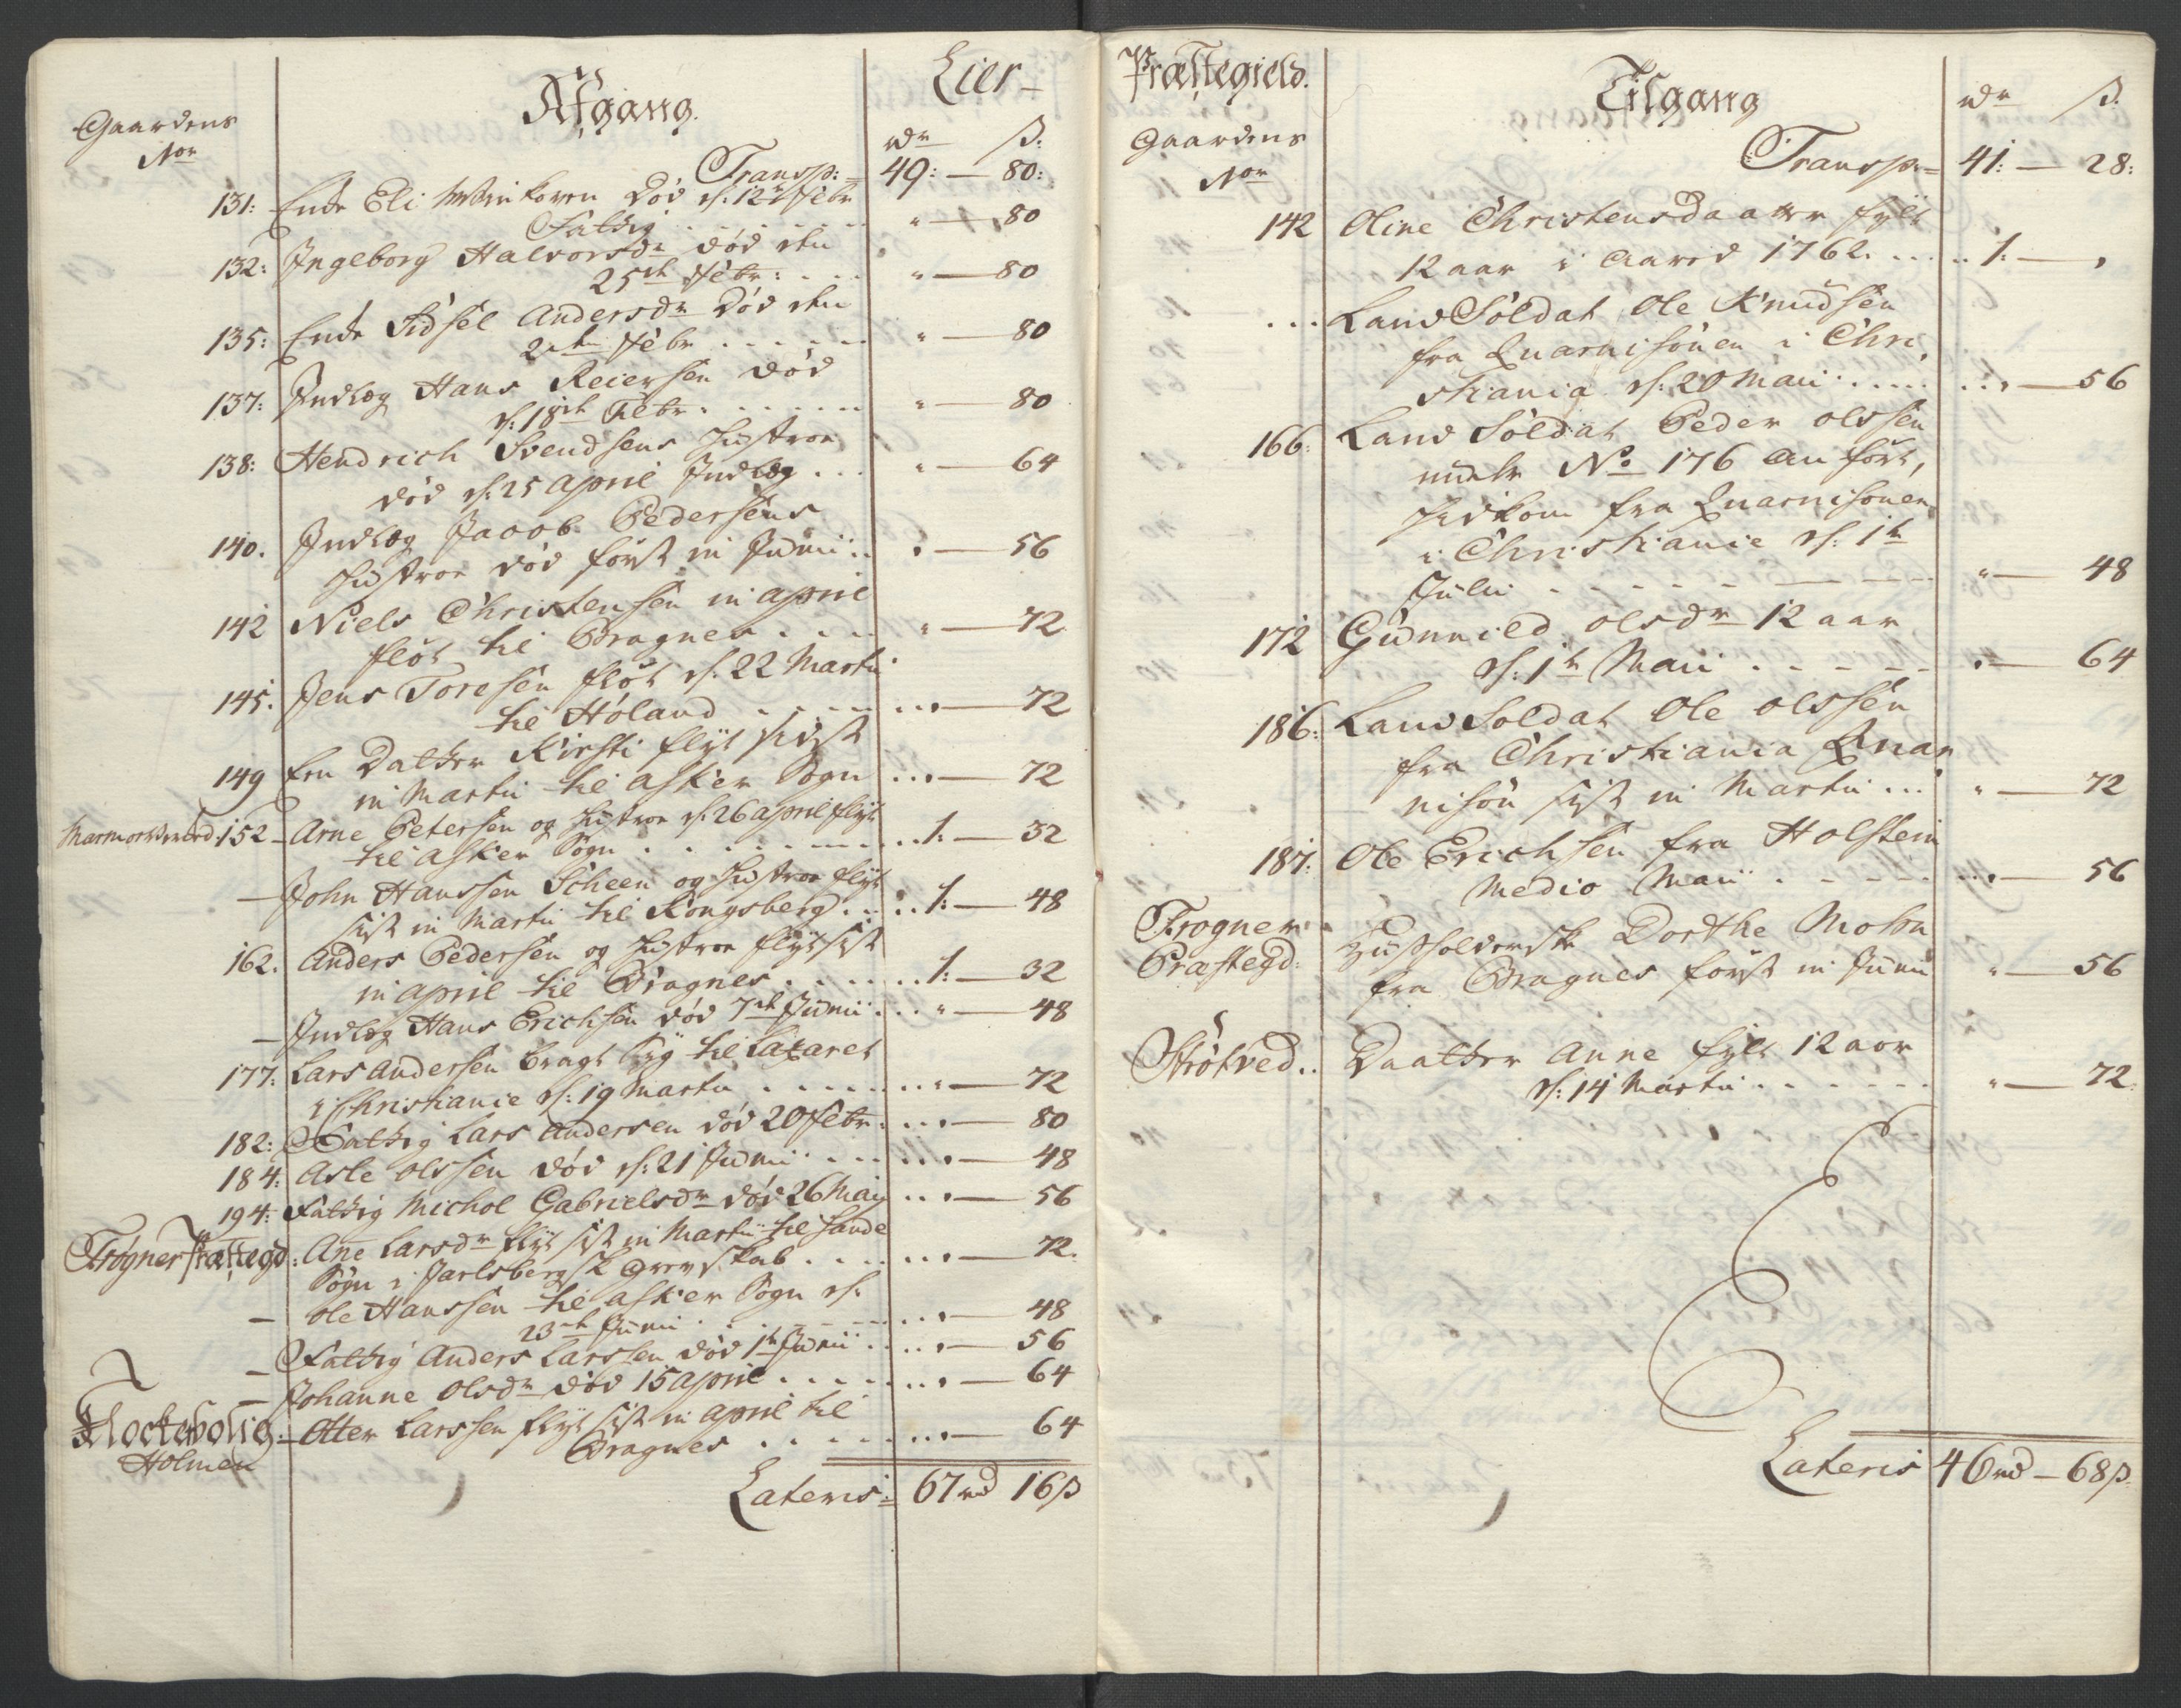 Afgang.
Lier
Gaardens
No
rdr ß:
Transp: 49: — 80:
131: Enke Eli Wærskoven død d: 12te Febr
Fattig . . . . " — 80
132: Ingeborg Halvorsdr død den
25de Febr: . . . " — 80
135: Enke Sidsel Andersdr død den
2den Febr . . . . " — 80
137: Indlæg Hans Reiersen død
d: 18de Febr. . . . . " — 80
138: Hendrich Svendsens Hustroe
død d: 25 April Indlæg . . . " — 64
140. Indlæg Jacob Pedersens
Hustroe død först in Junii . . " — 56
142 Niels Christensen in April
fløt til Bragnes . . . . " — 72
145. Jens Toresen fløt d: 22 Martii
til Höland . . . . . " — 72
149 En Datter Kirsti flyt sidst
in Martii til Asker Sogn . . . " — 72
152 – Arne Petersen og Hustroe d: 26 April flyt
til Asker Sogn . . . . . . 1: — 32
— John Hanssen Scheen og Hustroe flyt
sist in Martii til Kongsberg . . . 1: — 48
162. Anders Pedersen og Hustroe flyt sist
in April til Bragnes . . . . 1: — 32
— Indlæg Hans Erichsen død 7de Junii . . . " — 48
177: Lars Andersen bragt syg til Lazaret
i Christianie d: 19 Martii . . . . . " — 72
182: Fattig Lars Andersen død 20 Febr: . . . " — 80
184: Asle Olssen død d: 21 Junii . . . . . " — 48
194: Fattig Michol Gabrielsdr død 26 Maij . . . " — 56
Frogner Præstegd: Ane Larsdr flyt sist in Martii til Sande
Sogn i Jarlsberg Grevskab . . . . . " — 72.
— Ole Hanssen til Asker Sogn d:
23de Junii . . . . . " — 48
— Fattig Anders Larssen død 1te Junii . . . . " — 56
— Johanne Olsdr død 15 April . . . . . . . " — 64
Klockerbolig: – Otter Larssen flyt sist in April til
Holmen Bragnes . . . . . . . . " — 64
Lateris: 67 rd 16 ß
Præstegield.
Tilgang
Gaardens
No
rdr ß.
Transp: 41: — 28:
142 Oline Christensdaatter fylt
12 aar i Aaret 1762. . . . . 1: — "
. . . Land Soldat Ole Knudsen
fra Quarnisonen i Chri,
stiania d: 20 Maii . . . . . . . " — 56
166: Land Soldat Peder Olssen
under No 176 anfört,
hidkom fra Quarnisonen
i Christianie d: 1te
Julii . . . . . . " — 48
172 Gunnild Olsdr 12 aar
d: 1te Maii . . . . . " — 64
186: Land Soldat Ole Olssen
fra Christiania Quar
nison sist in Martii . . . " — 72
187: Ole Erichsen fra Holsteen
medio Maii . . . . . . " — 56
Frogner Huusholderske Dorthe Mohn
Præstegd: fra Bragnes först in Junii " — 56
Strøtved . . Daatter Anne fylt 12 aar
d: 14 Martii . . . . . . " — 72.
Lateris 46 rd — 68 ß.